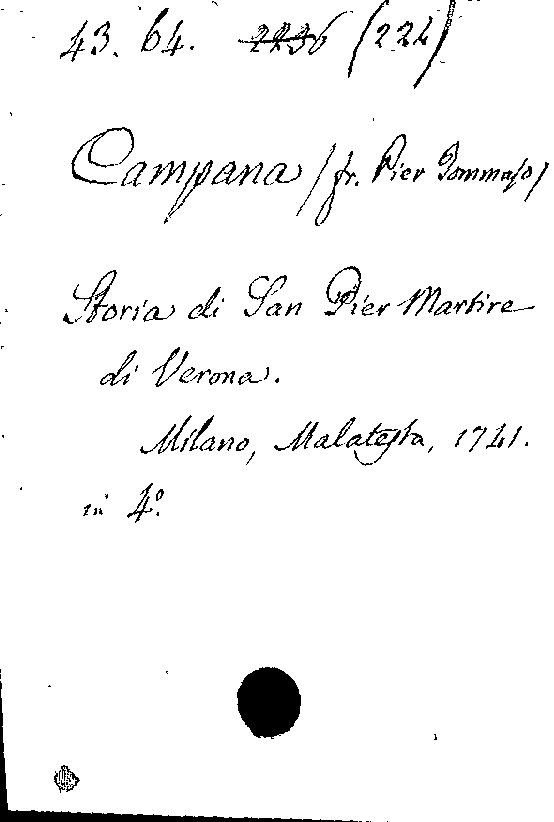 43. 64. 2236 (224)
Campana (fr. Pier Tommaso)
Storia di San Pier Martire
di Verona.
Milano, Malatesta, 1741.
in 4º.